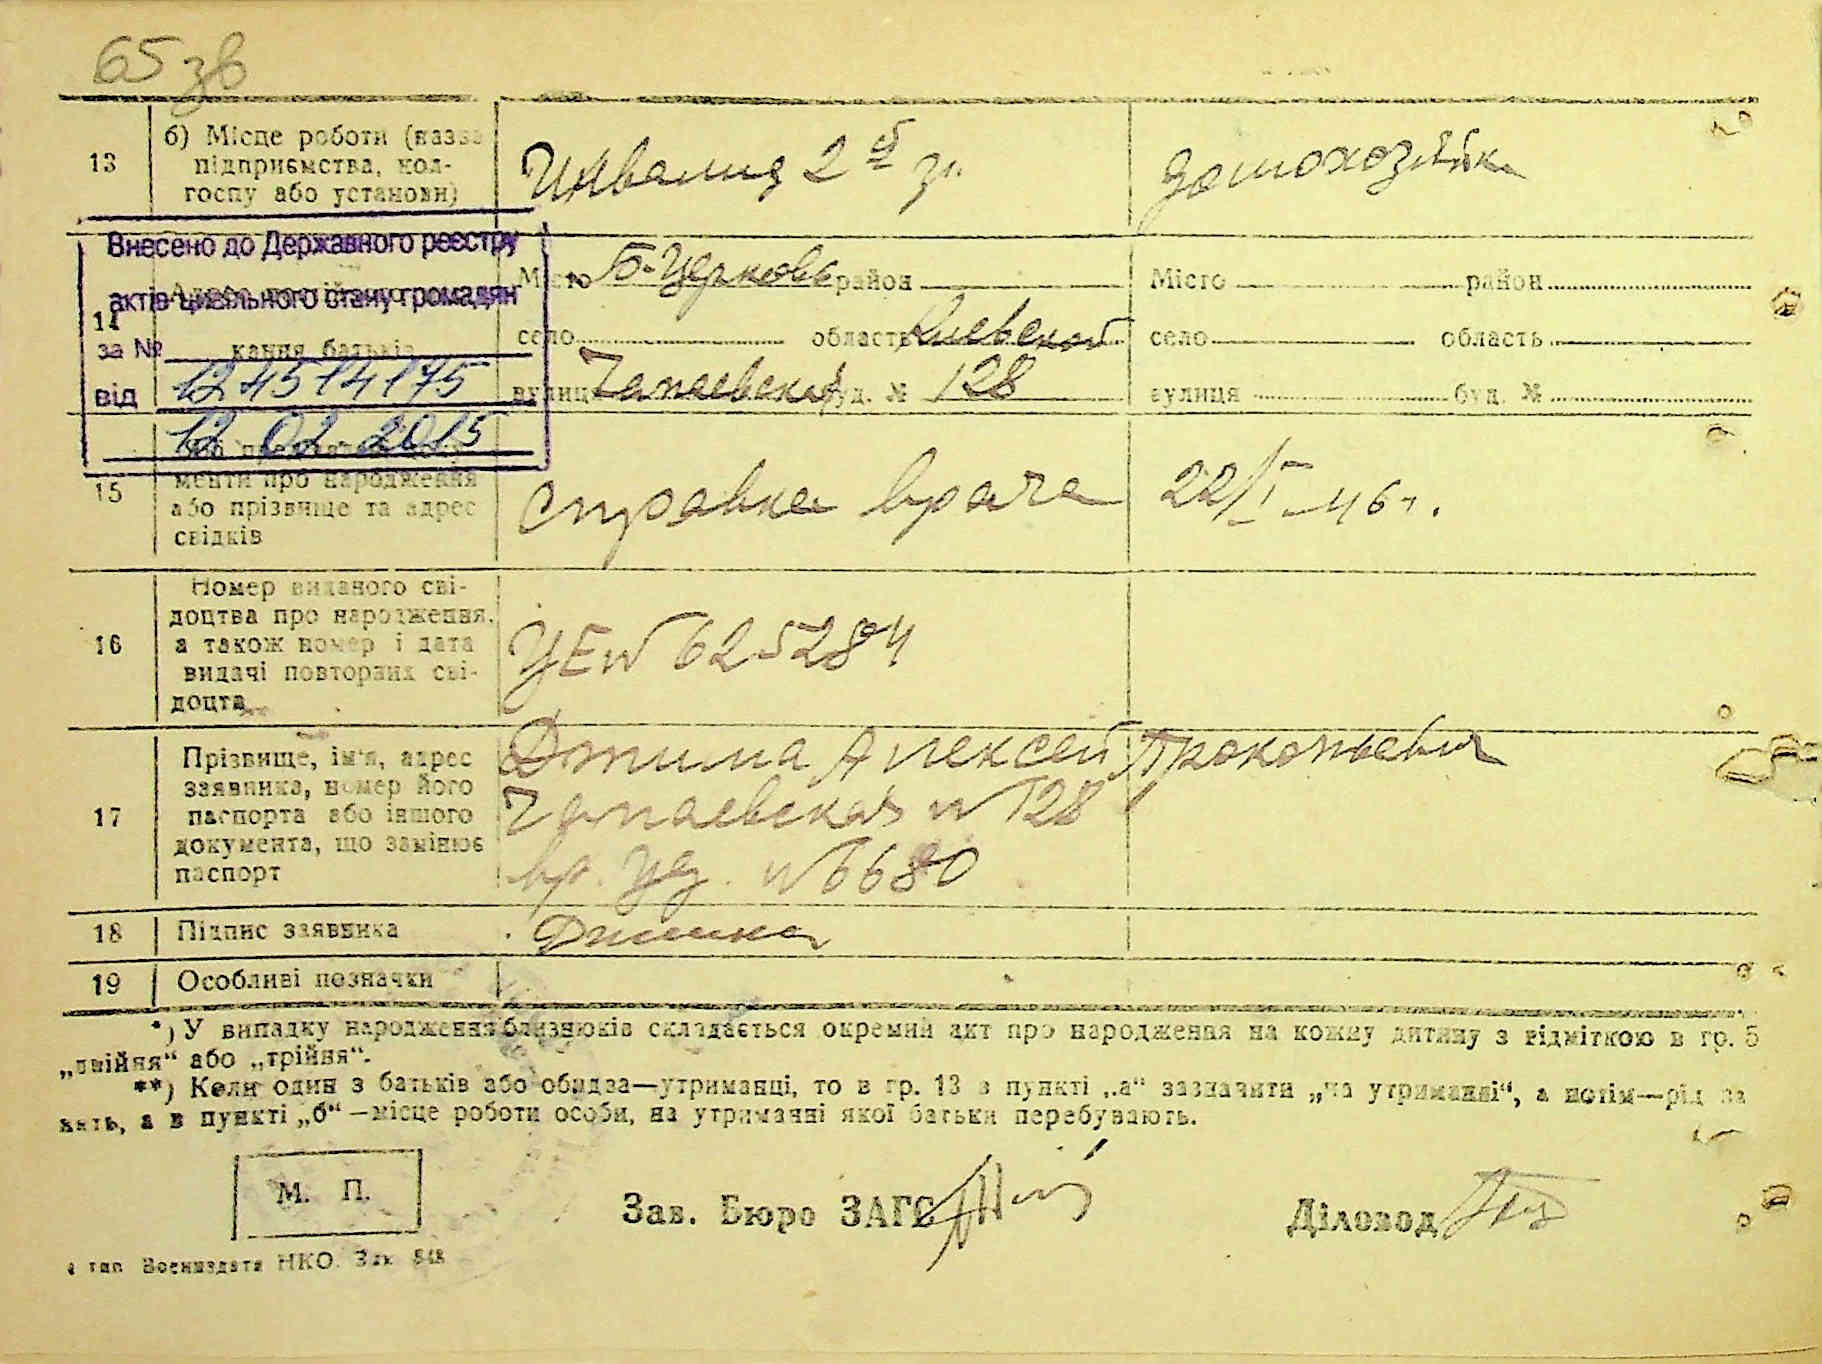 65 зв
13 б) Місце роботи (назва
підприємства, кол-
госпу або установи)
Инвалид 2 й гр. домохозяйка
Внесено до Державного реєстру
актів цивільного стану громадян
за №
1245 14175
від
12 02. 2015
14
кання батьків
Місто Б-Церковь район Місто район
село область Киевской село область
вулиця Чапаевская буд. № 128 вулиця буд. №
15
менти про народження
або прізвище та адрес
свідків
справка врача 22/I-46 г.
16 Номер виданого сві-
доцтва про народження,
а також номер і дата
видачі повторних сві-
доцтв
УЕ № 625284
17 Прізвище, ім'я, адрес
заявника, номер його
паспорта або іншого
документа, що замінює
паспорт
Алексей Прокопьевич
Чапаевская № 128
вр. уд. № 6680
18 Підпис заявника
19 Особливі позначки
*) У випадку народження близнюків складається окремий акт про народження на кожну дитину з відміткою в гр. 5
„двійня“ або „трійня“.
**) Коли один з батьків або обидва—утриманці, то в гр. 13 в пункті „а“ зазначити „на утриманні“, а потім—рід за
нять, а в пункті „б“—місце роботи особи, на утриманні якої батьки перебувають.
М. П.
Зав. Бюро ЗАГС Діловод
тип Воениздата НКО. Зак 548